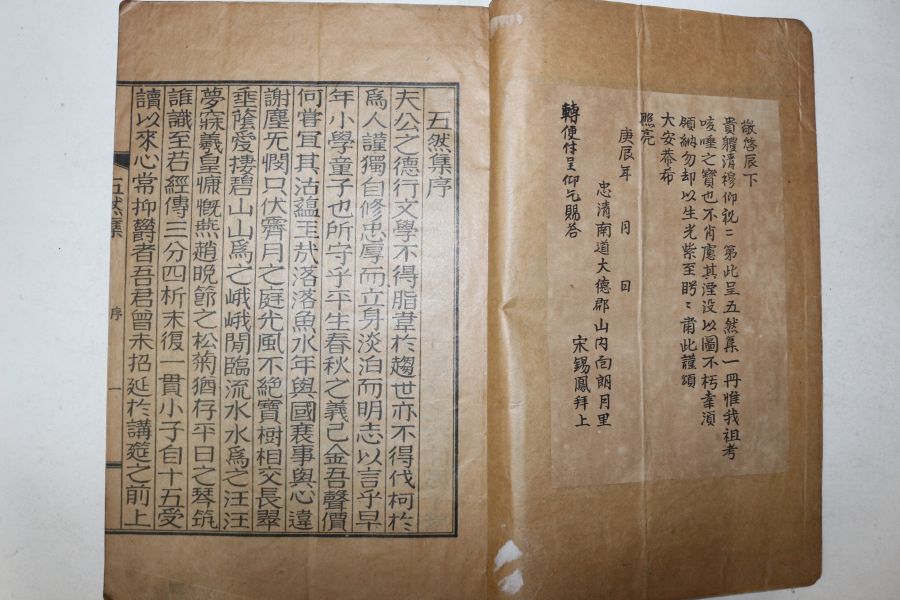 敬啓辰下
貴軆清穆仰祝二第此呈五然集一冊惟我祖考
咳唾之寶也不肖慮其湮没以圖不朽幸須
領納勿却以生光紫至眄二肅此謹頌
大安恭希
照亮
庚辰年 月 日
忠清南道大德郡山内面朗月里
宋錫鳳拜上
轉便付呈仰乞賜答
五然集序
夫公之德行文學不得脂韋於趨世亦不得伐柯於
爲人謹獨自修忠厚而立身淡泊而明志以言乎早
年小學童子也所守乎平生春秋之義已金吾聲價
何嘗冝其沽蘊玉㢤落落魚水年與國衰事與心違
謝塵无憫只伏霽月之庭光風不絶寳樹相交長翠
垂蔭爰棲碧山山爲之峨峨閒臨流水水爲之汪汪
夢寐羲皇慷慨燕趙晩節之松菊猶存平日之琴筑
誰識至若經傳三分四析末復一貫小子自十五受
讀以來心常抑欝者吾君曾未招延於講筵之前上
五然集 序 一